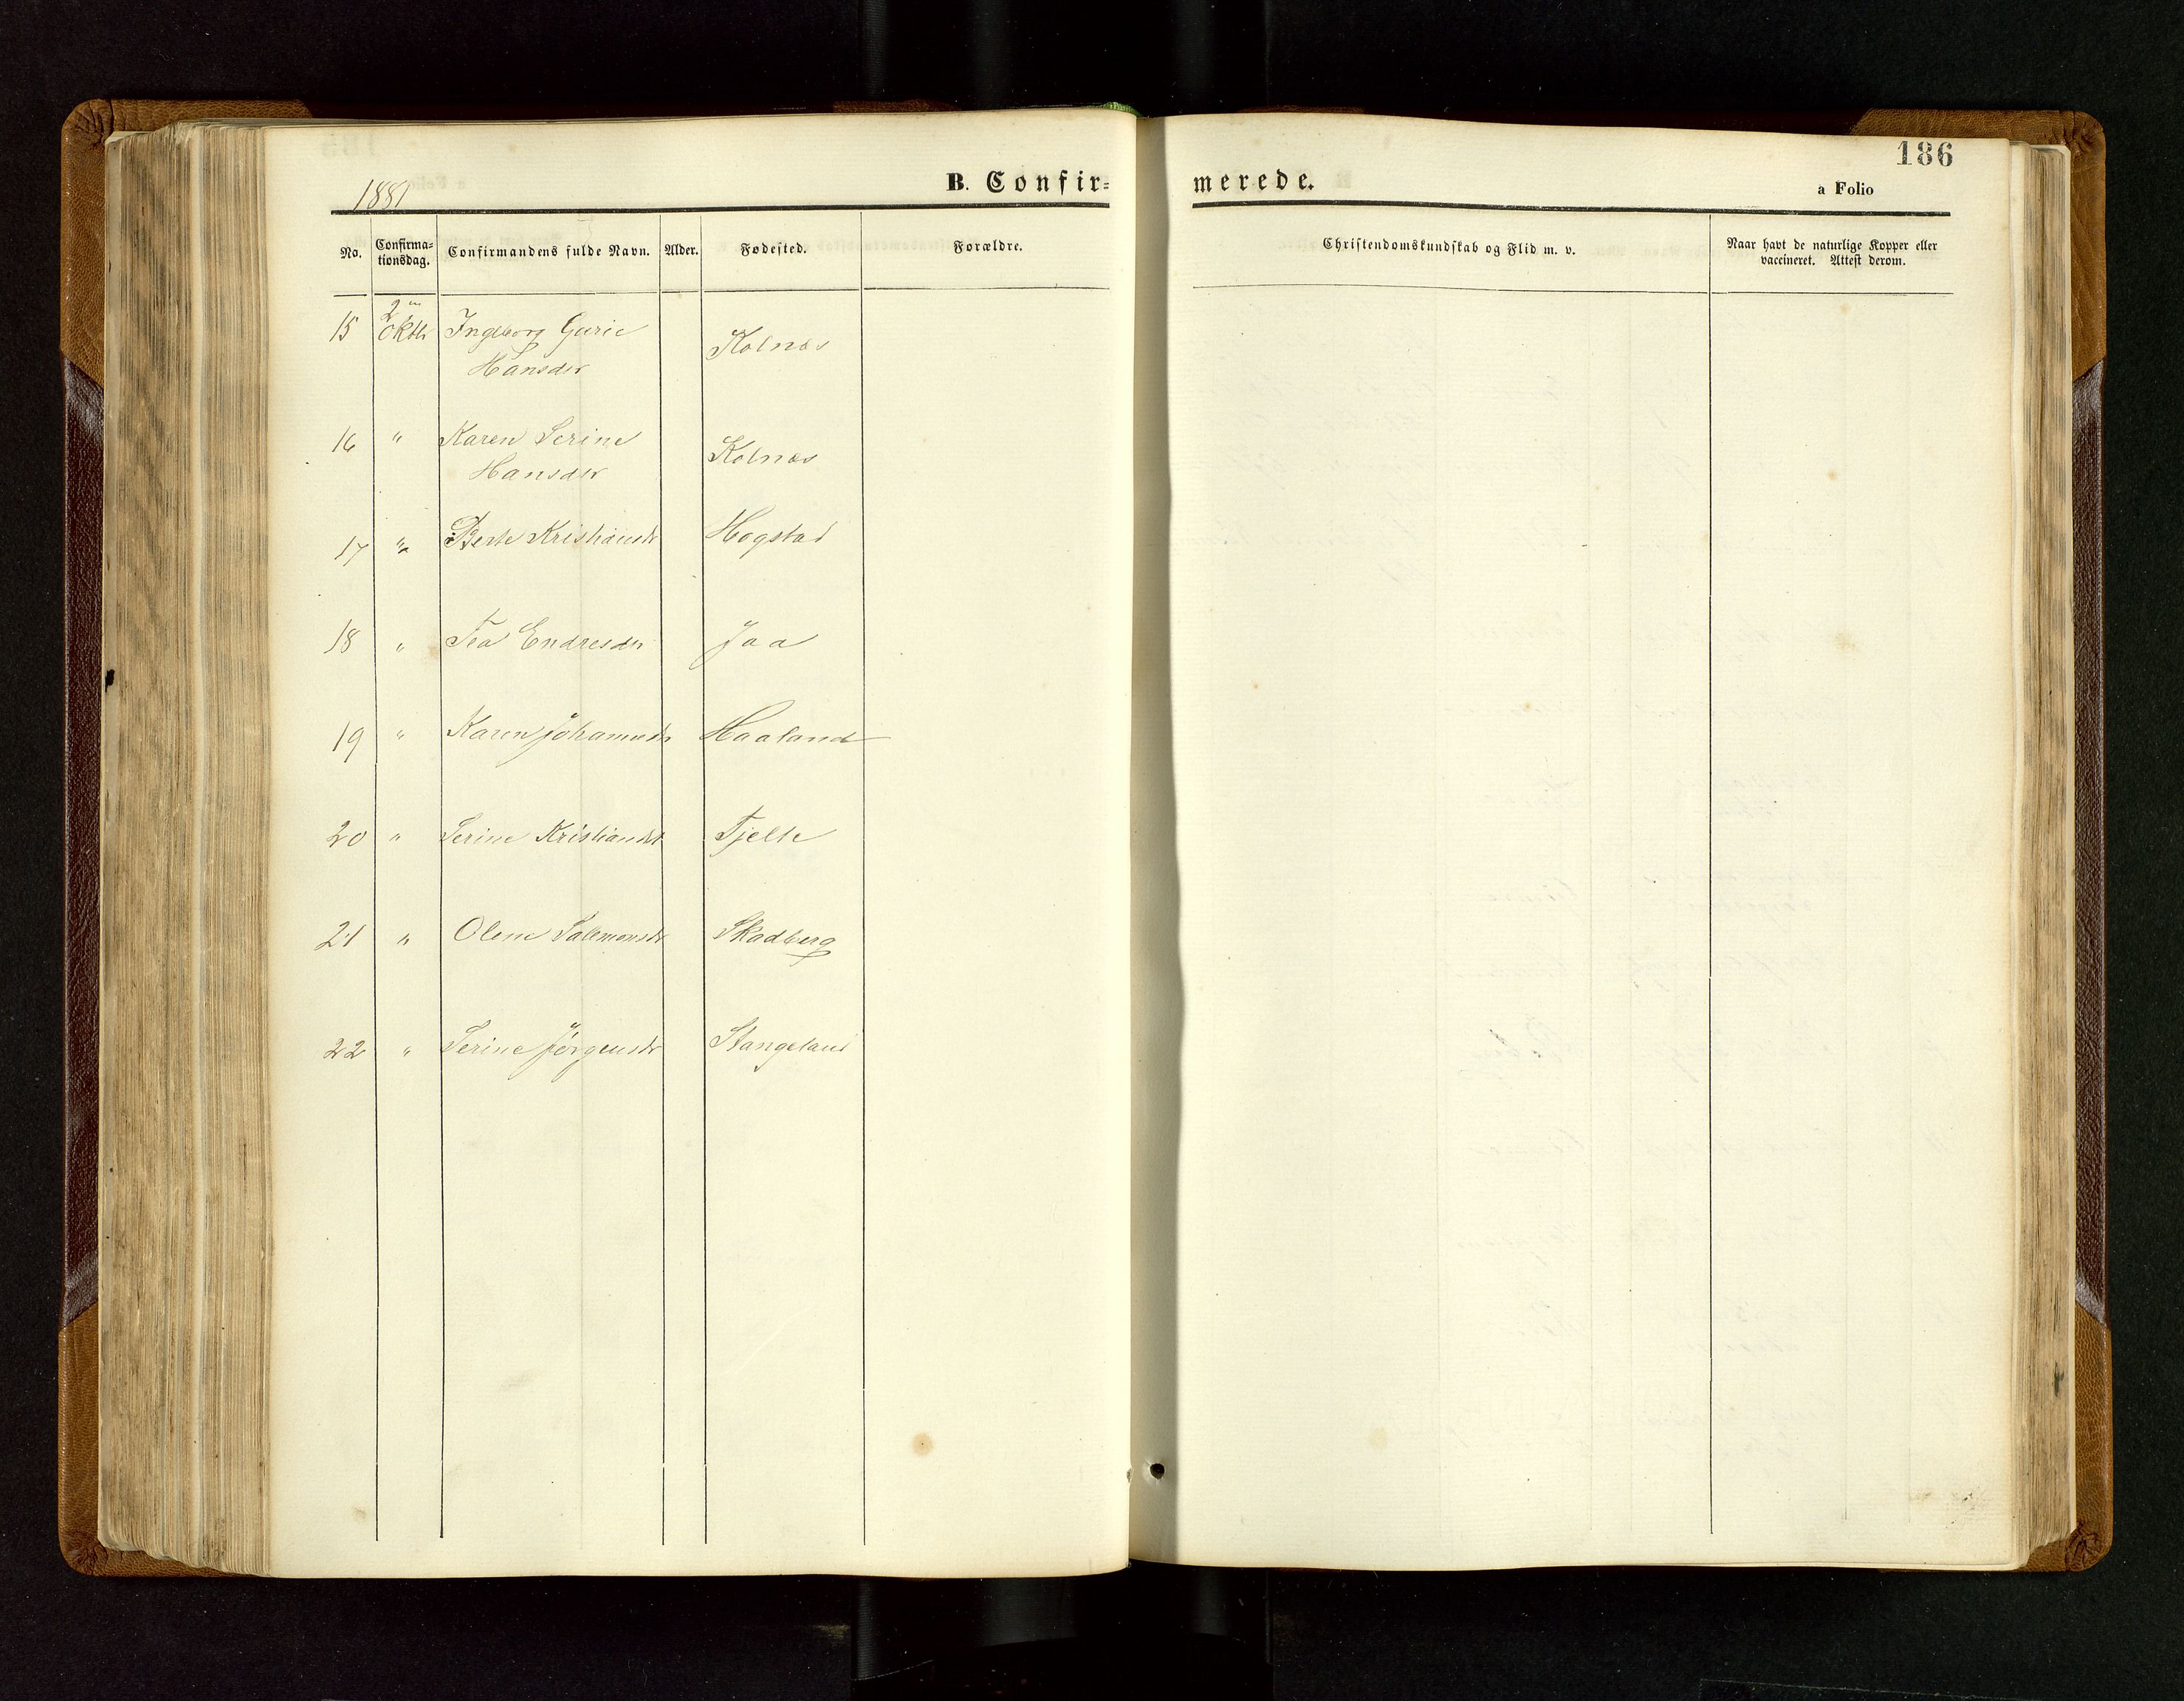 186
1881 B. Confirmerede. a Folio
No. Confirmationsdag. Confirmandens fulde Navn. Alder. Fødested. Forældre. Christendomskundskab og Flid m. v. Naar havt de naturlige Kopper eller vaccineret. Attest derom.
2
15 Oktb Ingeborg Gurie Kolnæs
Hansdtr
16 " Karen Serine Kolnæs
Hansdtr
17 " Berte Kristiansdtr Hogstad
18 " Tea Endresdtr Jaa
19 " Karen Johannesdtr Haaland
20 " Serine Kristiansdtr Tjelte
21 " Olene Salemonsdtr Skadberg
22 " Serine Jørgensdtr Stangeland